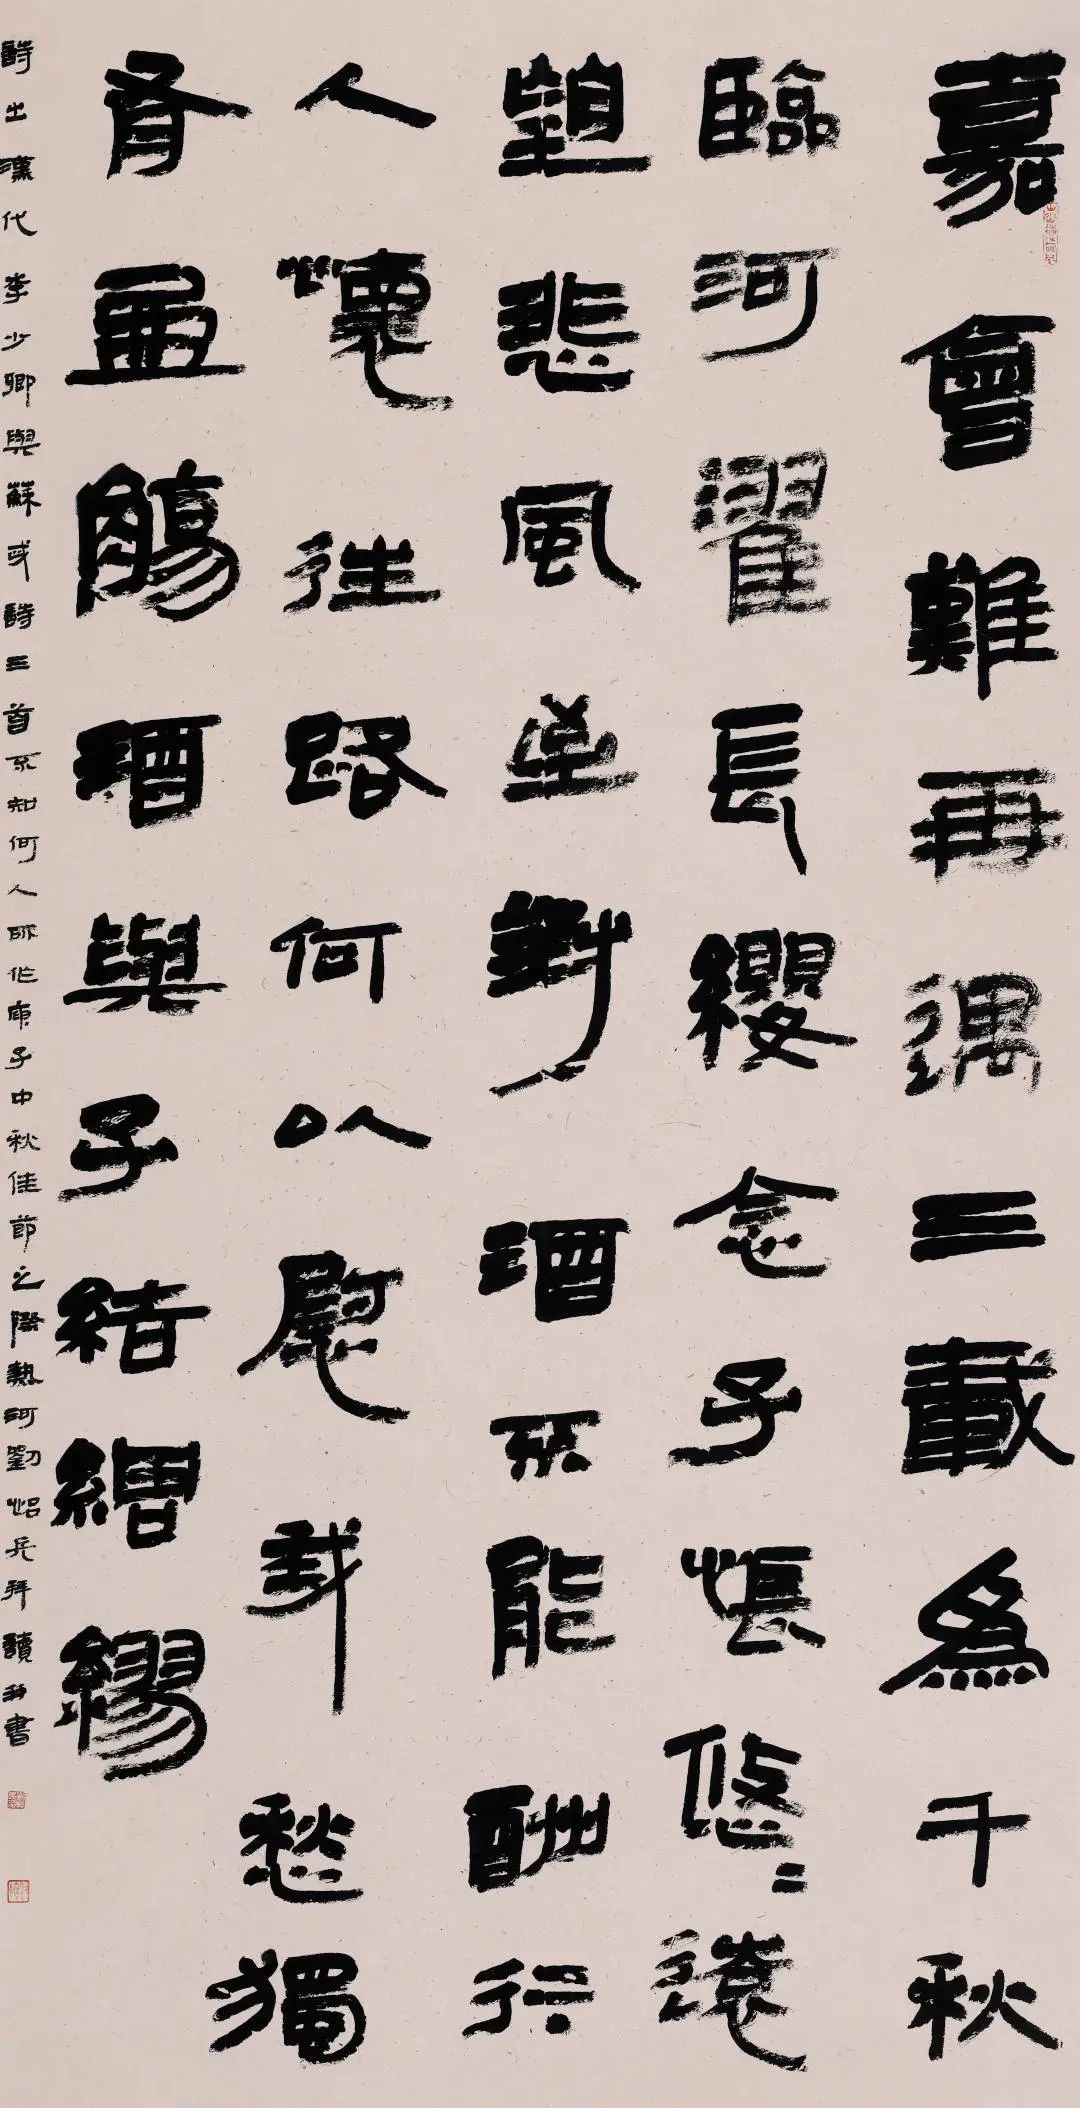 嘉會難再遇三載爲千秋
臨河濯長纓念子悵悠〻遠
望悲風至對酒不能酬行
人懷往路何以慰我愁獨
有盈觴酒與子結綢繆
詩出漢代李少卿與蘇武詩三首不知何人所作庚子中秋佳節之際熱河劉兵拜讀并書